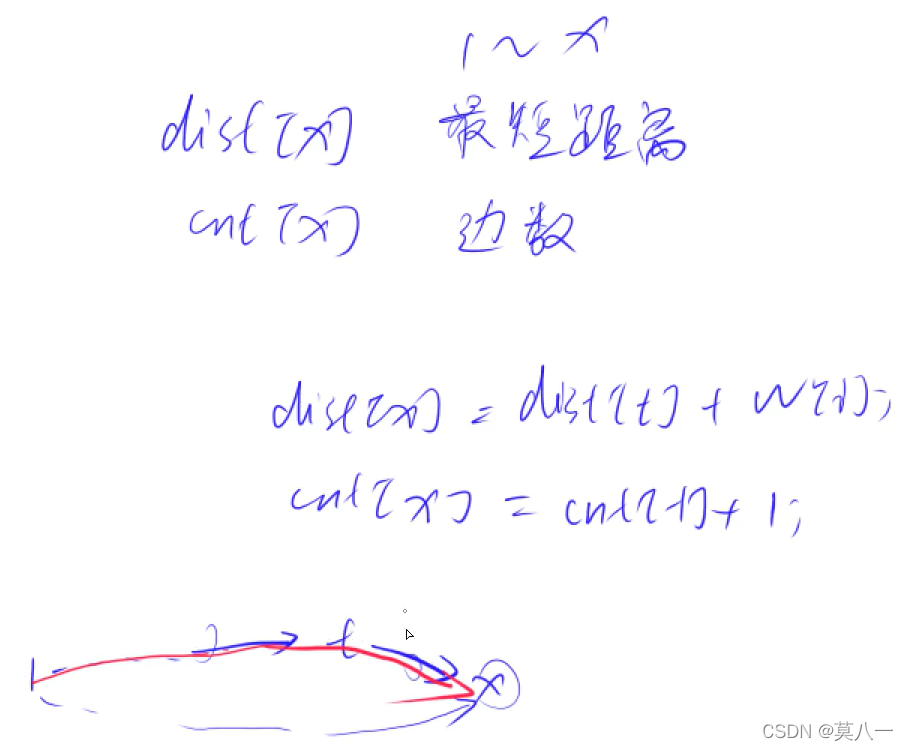 1 ~ x
dist[x] 最短距离
cnt[x] 边数
dist[x] = dist[t] + w[i];
cnt[x] = cnt[t] + 1;
1 t x
CSDN @莫八一